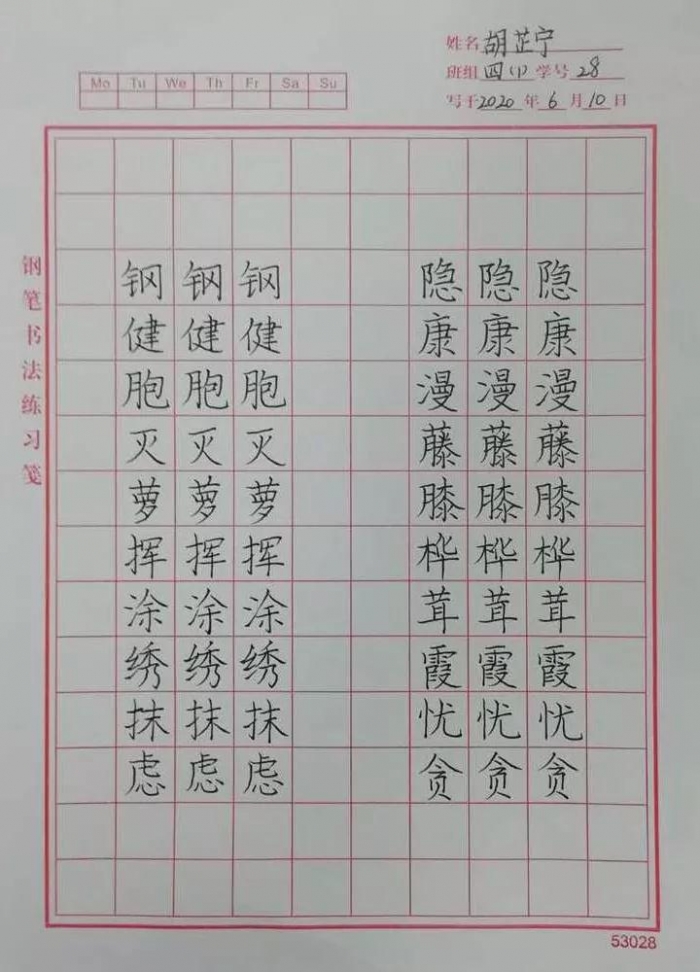 姓名 胡芷宁
班组 四(1) 学号 28
写于 2020 年 6 月 10 日
Mo Tu We Th Fr Sa Su
钢笔书法练习笺
钢 钢 钢 隐 隐 隐
健 健 健 康 康 康
胞 胞 胞 漫 漫 漫
灭 灭 灭 藤 藤 藤
萝 萝 萝 膝 膝 膝
挥 挥 挥 桦 桦 桦
涂 涂 涂 茸 茸 茸
绣 绣 绣 霞 霞 霞
抹 抹 抹 忧 忧 忧
虑 虑 虑 贪 贪 贪
53028